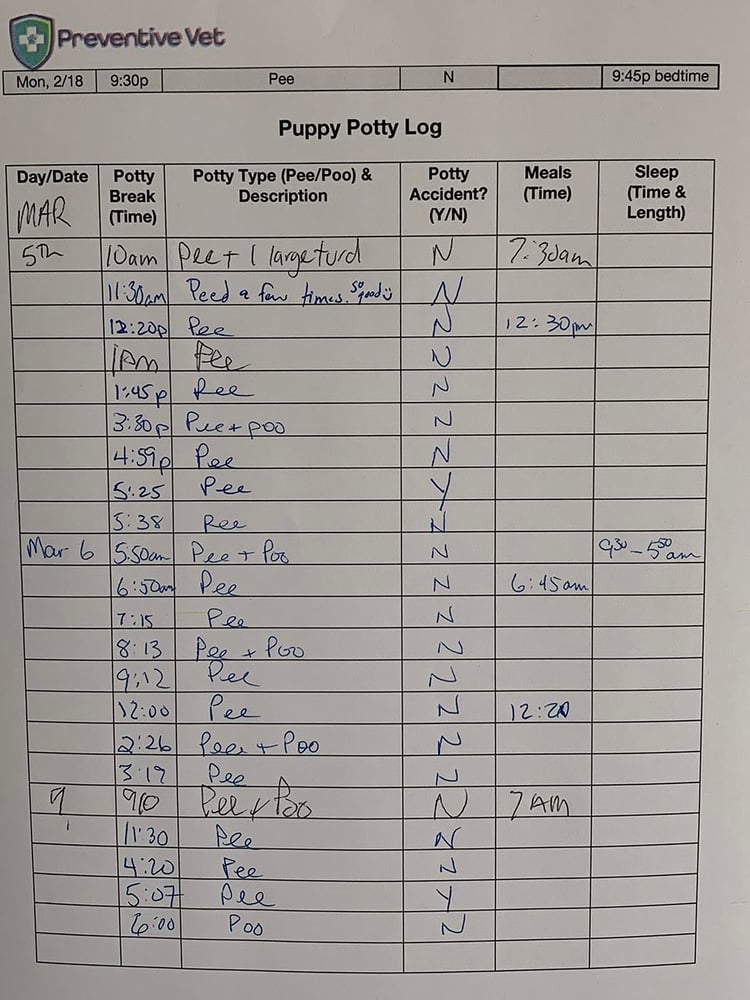 Preventive Vet
Mon, 2/18 9:30p Pee N 9:45p bedtime
Puppy Potty Log
Day/Date Potty Break (Time) Potty Type (Pee/Poo) & Description Potty Accident? (Y/N) Meals (Time) Sleep (Time & Length)
MAR
5th 10am Pee + 1 large turd N 7:30am
11:30am Peed a few times. so good N
12:20p Pee N 12:30pm
1pm Pee N
1:45p Pee N
3:30p Pee + poo N
4:59p Pee N
5:25 Pee Y
5:38 Pee N
Mar 6 5:50am Pee + Poo N 9:30 - 5:50am
6:50am Pee N 6:45am
7:15 Pee N
8:13 Pee + Poo N
9:12 Pee N
12:00 Pee N 12:20
2:26 Pee + Poo N
3:19 Pee N
9 910 Pee + Poo N 7AM
11:30 Pee N
4:20 Pee N
5:07 Pee Y
6:00 Poo N